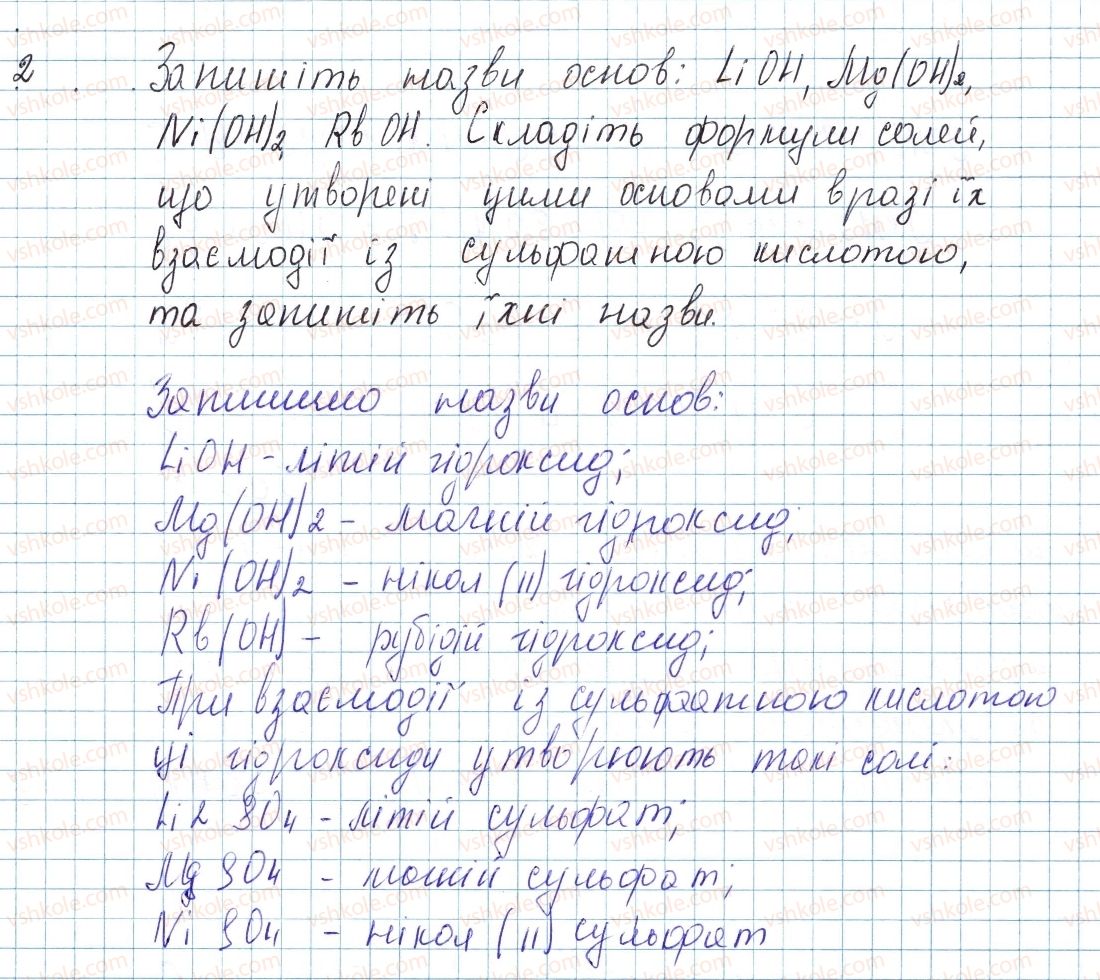 2. Запишіть назви основ: LiOH, Mg(OH)2,
Ni(OH)2, RbOH. Складіть формули солей,
що утворені цими основами в разі їх
взаємодії із сульфатною кислотою,
та запишіть їхні назви.
Запишимо назви основ:
LiOH - літій гідроксид;
Mg(OH)2 - магній гідроксид;
Ni(OH)2 - нікол (II) гідроксид;
Rb(OH) - рубідій гідроксид;
При взаємодії із сульфатною кислотою
ці гідроксиди утворюють такі солі:
Li2SO4 - літій сульфат;
MgSO4 - магній сульфат;
NiSO4 - нікол (II) сульфат